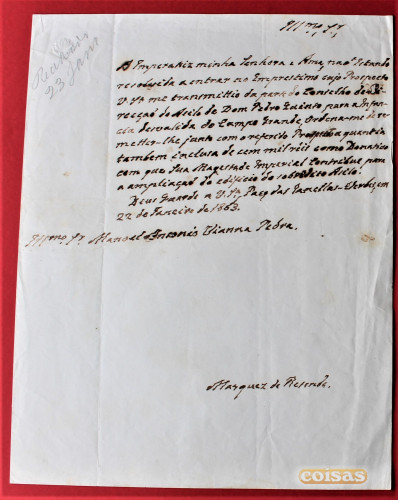 Illmo. Sr.
Recebida
23 Janr
A Imperatriz minha Senhora e Ama, não Estando
resolvida a entrar no Emprestimo cujo Prospecto
V. Sa. me transmittio da parte do Conselho de Di-
recção do Asilo de Dom Pedro Quinto para a Infan-
cia desvalida do Campo Grande, Ordena-me de re-
metter-lhe junto com o referido Prospecto a quantia
tambem inclusa de cem mil réis como Donativo
com que Sua Magestade Imperial Contribue para
a ampliação do edificio do sobredito Asilo.
Deus Guarde a V. Sa. Paço das Janellas-Verdes, em
22 de Janeiro de 1863.
Illmo. Sr. Manoel Antonio Vianna Pedra.
Marquez de Resende.
coisas